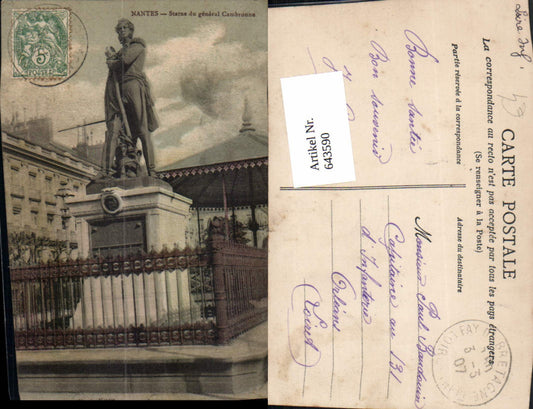 NANTES — Statue du général Cambronne
5c
POSTES
Loire Inf'
49
CARTE POSTALE
La correspondance au recto n'est pas acceptée par tous les pays étrangers.
(Se renseigner à la Poste)
Partie réservée à la correspondance
Adresse du destinataire
Bonne santé
Bon souvenir
Artikel Nr.
643590
Monsieur Paul Baudouin
Capitaine au 131
d'Infanterie
Orléans
(Loiret)
BRETAGNE
3-3
07